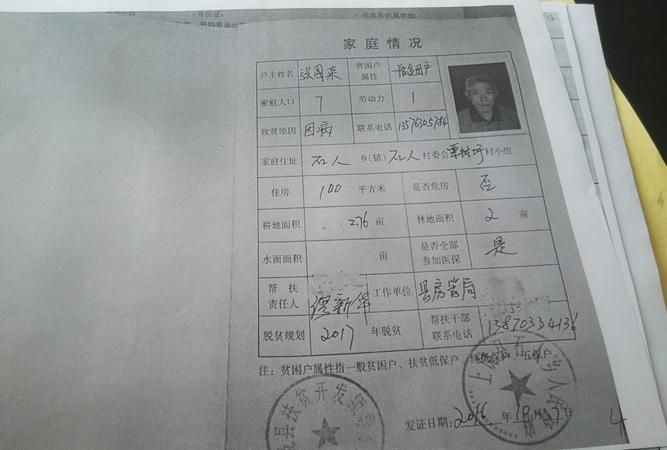 家庭情况
户主姓名 张国荣 贫困户属性 一般贫困户
家庭人口 7 劳动力 1
致贫原因 因病 联系电话
家庭住址 石人 乡(镇) 石人 村委会 栗树坪 村小组
住房 100 平方米 是否危房 否
耕地面积 2.76 亩 林地面积 2 亩
水面面积 亩 是否全部参加医保 是
帮扶责任人 工作单位 县房管局
脱贫规划 2017 年脱贫 帮扶干部联系电话 13870334136
注:贫困户属性指一般贫困户、扶贫低保户、 五保户
县扶贫开发
发证日期:2016 年 10月 17日
4